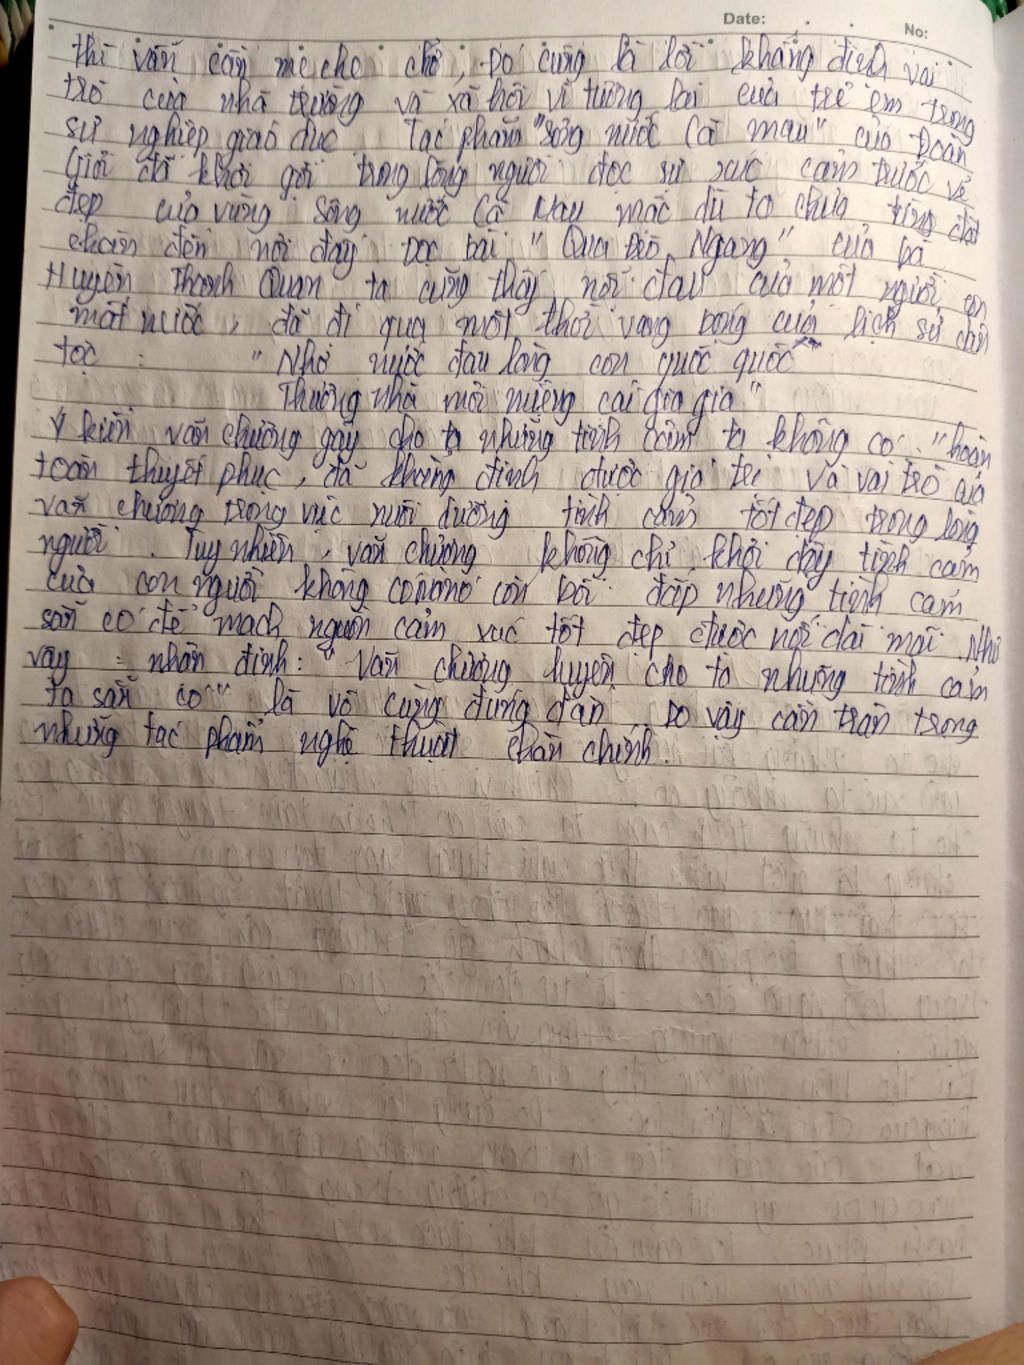 Date: . .
No:
thì vẫn cần mẹ che chở, Đó cũng là lời khẳng định vai
trò của nhà trường và xã hội vì tương lai của trẻ em trong
sự nghiệp giáo dục Tác phẩm "sông nước Cà mau" của Đoàn
Giỏi đã khơi gợi trong lòng người đọc sự xúc cảm trước vẻ
đẹp của vùng sông nước Cà Mau mặc dù ta chưa từng đặt
chân đến nơi đây Đọc bài "Qua Đèo Ngang" của bà
Huyện Thanh Quan ta cũng thấy nỗi đau của một người
mất nước, đã đi qua một thời vang bóng của lịch sử dân
tộc : "Nhớ nước đau lòng con quốc quốc
Thương nhà mỏi miệng cái gia gia"
Ý kiến văn chương gây cho ta những tình cảm ta không có "hoàn
toàn thuyết phục, đã khẳng định được giá trị và vai trò của
văn chương trong việc nuôi dưỡng tình cảm tốt đẹp trong lòng
người. Tuy nhiên, văn chương không chỉ khơi dậy tình cảm
của con người không có mà nó còn bồi đắp những tình cảm
sẵn có để mạch nguồn cảm xúc tốt đẹp được nối dài mãi. Như
vậy : nhận định: "Văn chương luyện cho ta những tình cảm
ta sẵn có" là vô cùng đúng đắn. Do vậy cần trân trọng
những tác phẩm nghệ thuật chân chính.